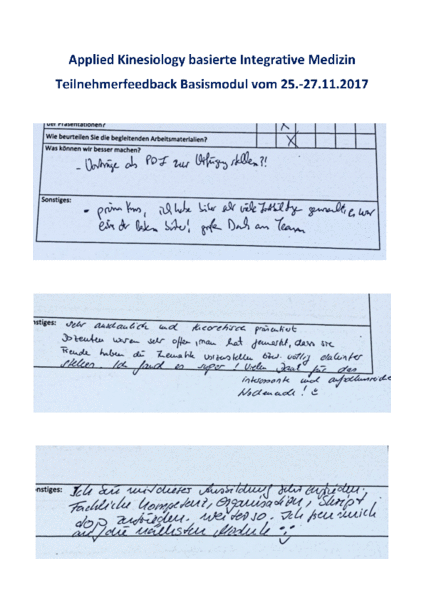 Applied Kinesiology basierte Integrative Medizin
Teilnehmerfeedback Basismodul vom 25.-27.11.2017
der Präsentationen?
Wie beurteilen Sie die begleitenden Arbeitsmaterialien?
Was können wir besser machen?
- Vorträge als PDF zur Verfügung stellen?!
Sonstiges:
- prima Kurs, ich habe bisher viele gemacht, es war
ein der bisher! großen Dank am Team
nstiges: sehr anschaulich und theoretisch präsentiert
Dozenten waren sehr offen, man hat gemerkt, dass sie
Freude haben die Thematik vorzustellen bzw. völlig dahinter
stehen. Ich fand es super! Vielen Dank für das
interessante und aufschlussreiche
Wochenende!
nstiges: Ich bin mit dieser Ausbildung sehr zufrieden.
Fachliche Kompetenz, Organisation, Skript
top zufrieden. weiter so. Ich freu mich
auf die nächsten Module